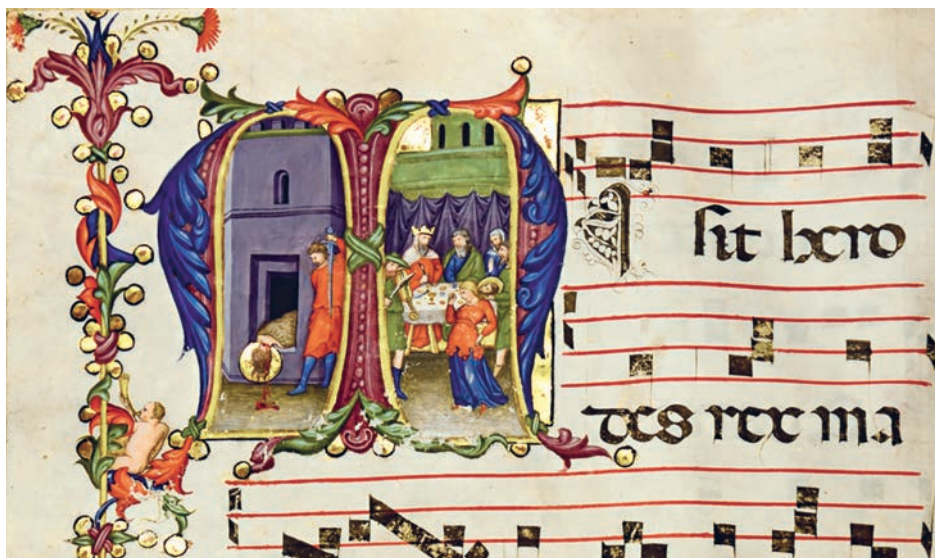 MI sit hero
des rex ma